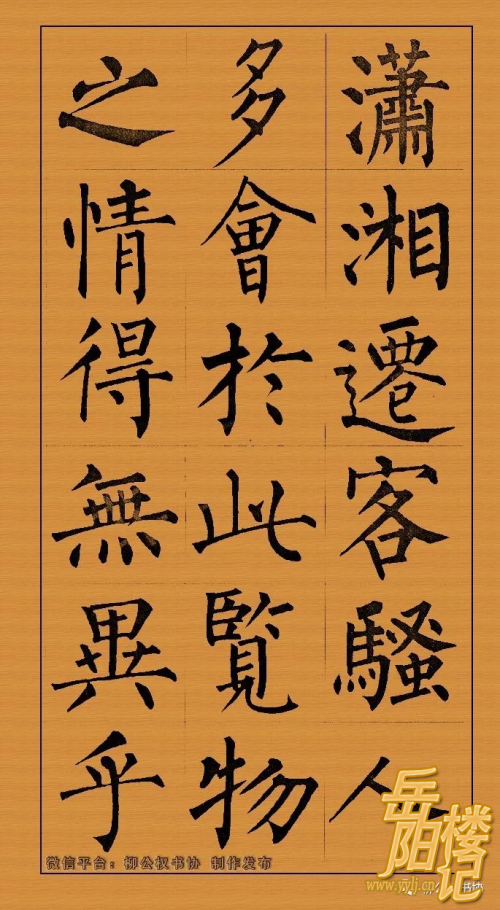 瀟湘遷客騷人
多會於此覽物
之情得無異乎
微信平台：柳公权书协 制作发布
岳阳楼记
www.yylj.cn